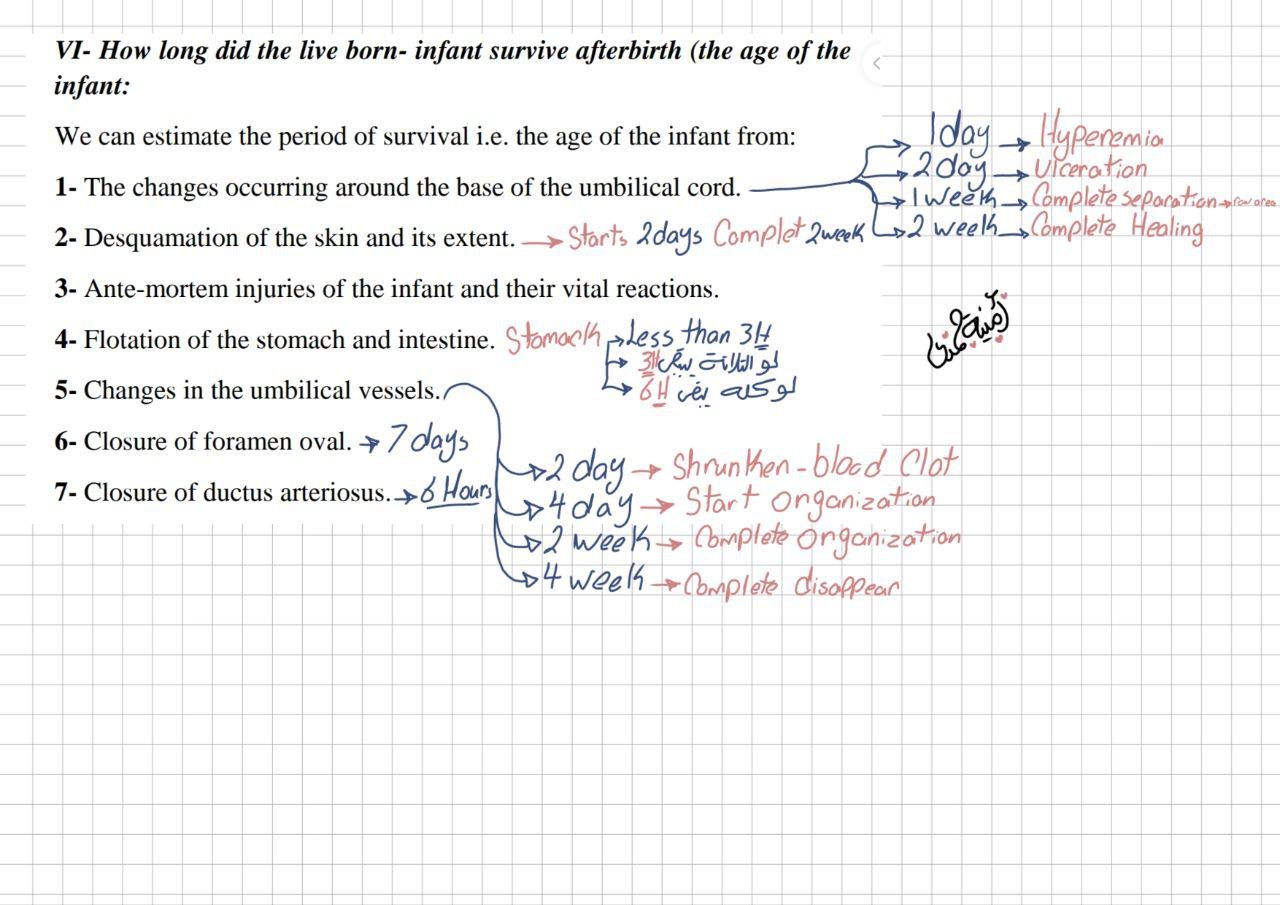 VI- How long did the live born- infant survive afterbirth (the age of the
infant:
We can estimate the period of survival i.e. the age of the infant from:
1- The changes occurring around the base of the umbilical cord.
1day → Hyperemia
2day → Ulceration
1week → Complete separation → row area
2 week → Complete Healing
2- Desquamation of the skin and its extent. → Starts 2days Complet 2week
3- Ante-mortem injuries of the infant and their vital reactions.
4- Flotation of the stomach and intestine. Stomach → Less than 3H
لو التلات يبقى 3H
لو كله يبقى 6H
5- Changes in the umbilical vessels.
2 day → Shrunken - blood Clot
4 day → Start organization
2 week → Complete organization
4 week → Complete disappear
6- Closure of foramen oval. → 7 days
7- Closure of ductus arteriosus. → 6 Hours